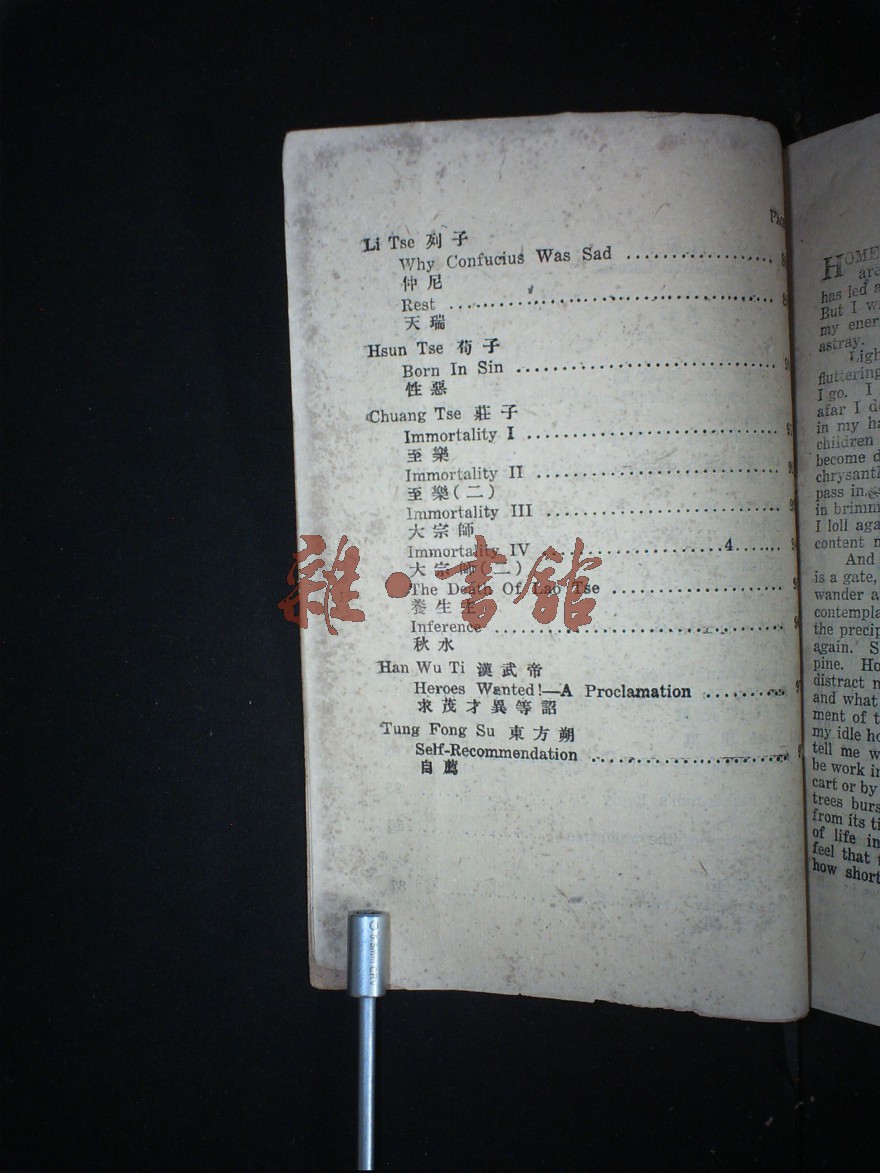 Li Tse 列子
Why Confucius Was Sad
仲尼
Rest
天瑞
Hsun Tse 荀子
Born In Sin
性惡
Chuang Tse 莊子
Immortality I
至樂
Immortality II
至樂(二)
Immortality III
大宗師
Immortality IV 4
大宗師(二)
The Death Of Lao Tse
養生主
Inference
秋水
Han Wu Ti 漢武帝
Heroes Wanted!—A Proclamation
求茂才異等詔
Tung Fong Su 東方朔
Self-Recommendation
自薦
雜·書館
HOME
has led
But I
my
astray.
fluttering
I go. I
afar I
in my
children
become
pass in
in
I loll
content
And
is a gate,
wander
the
again.
pine.
distract
and what
ment of
my idle
tell me
be work in
cart or by
trees
from its
of life in
feel that
how short